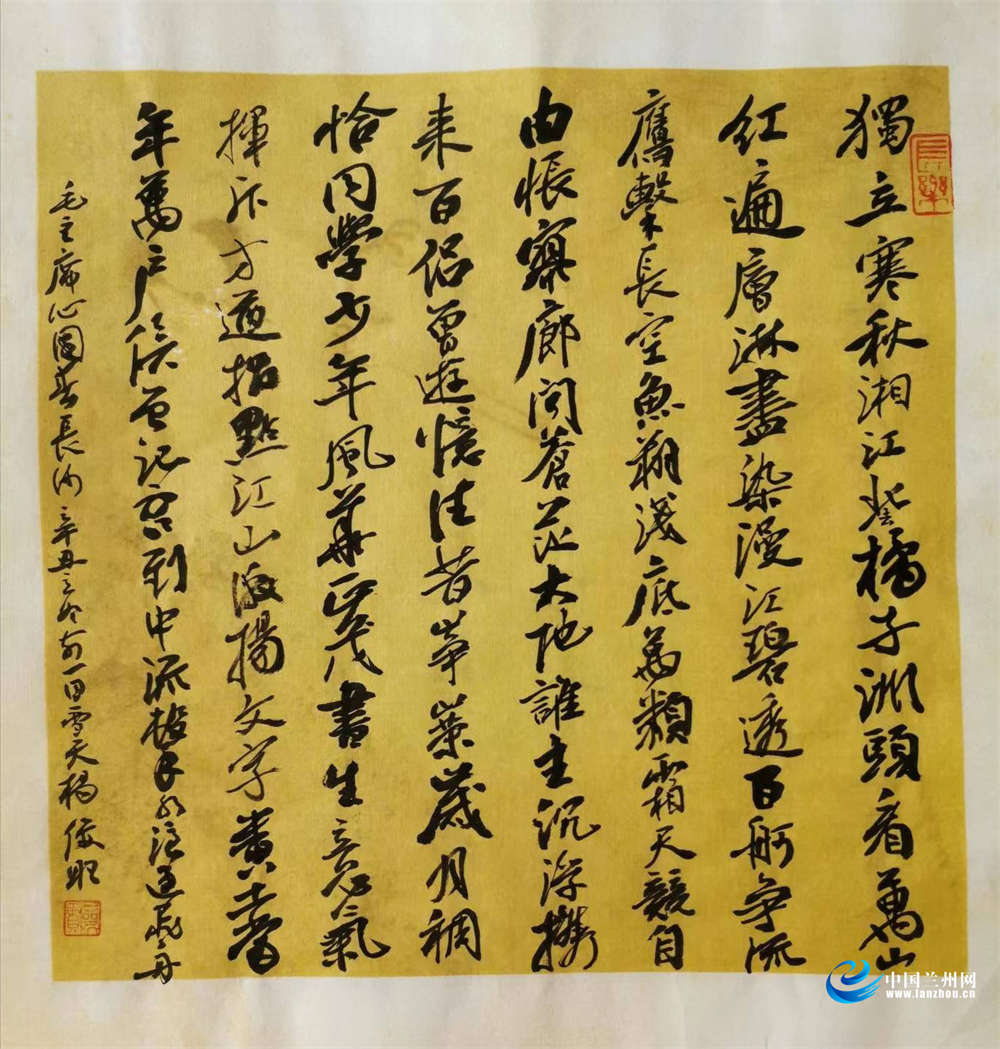 獨立寒秋湘江北去橘子洲頭看萬山
紅遍層淋盡染漫江碧透百舸争流
鷹擊長空魚翔淺底萬類霜天競自
由悵寥廓問蒼茫大地誰主沉浮攜
来百侣曾遊憶往昔崢嶸歲月稠
恰同學少年風華正茂書生意氣
揮斥方遒指點江山激揚文字糞土當
年萬户侯曾記否到中流擊水浪遏飛舟
毛主席沁園春長沙辛丑立冬前一日雪天楊俊
長樂
中国兰州网
www.lanzhou.cn